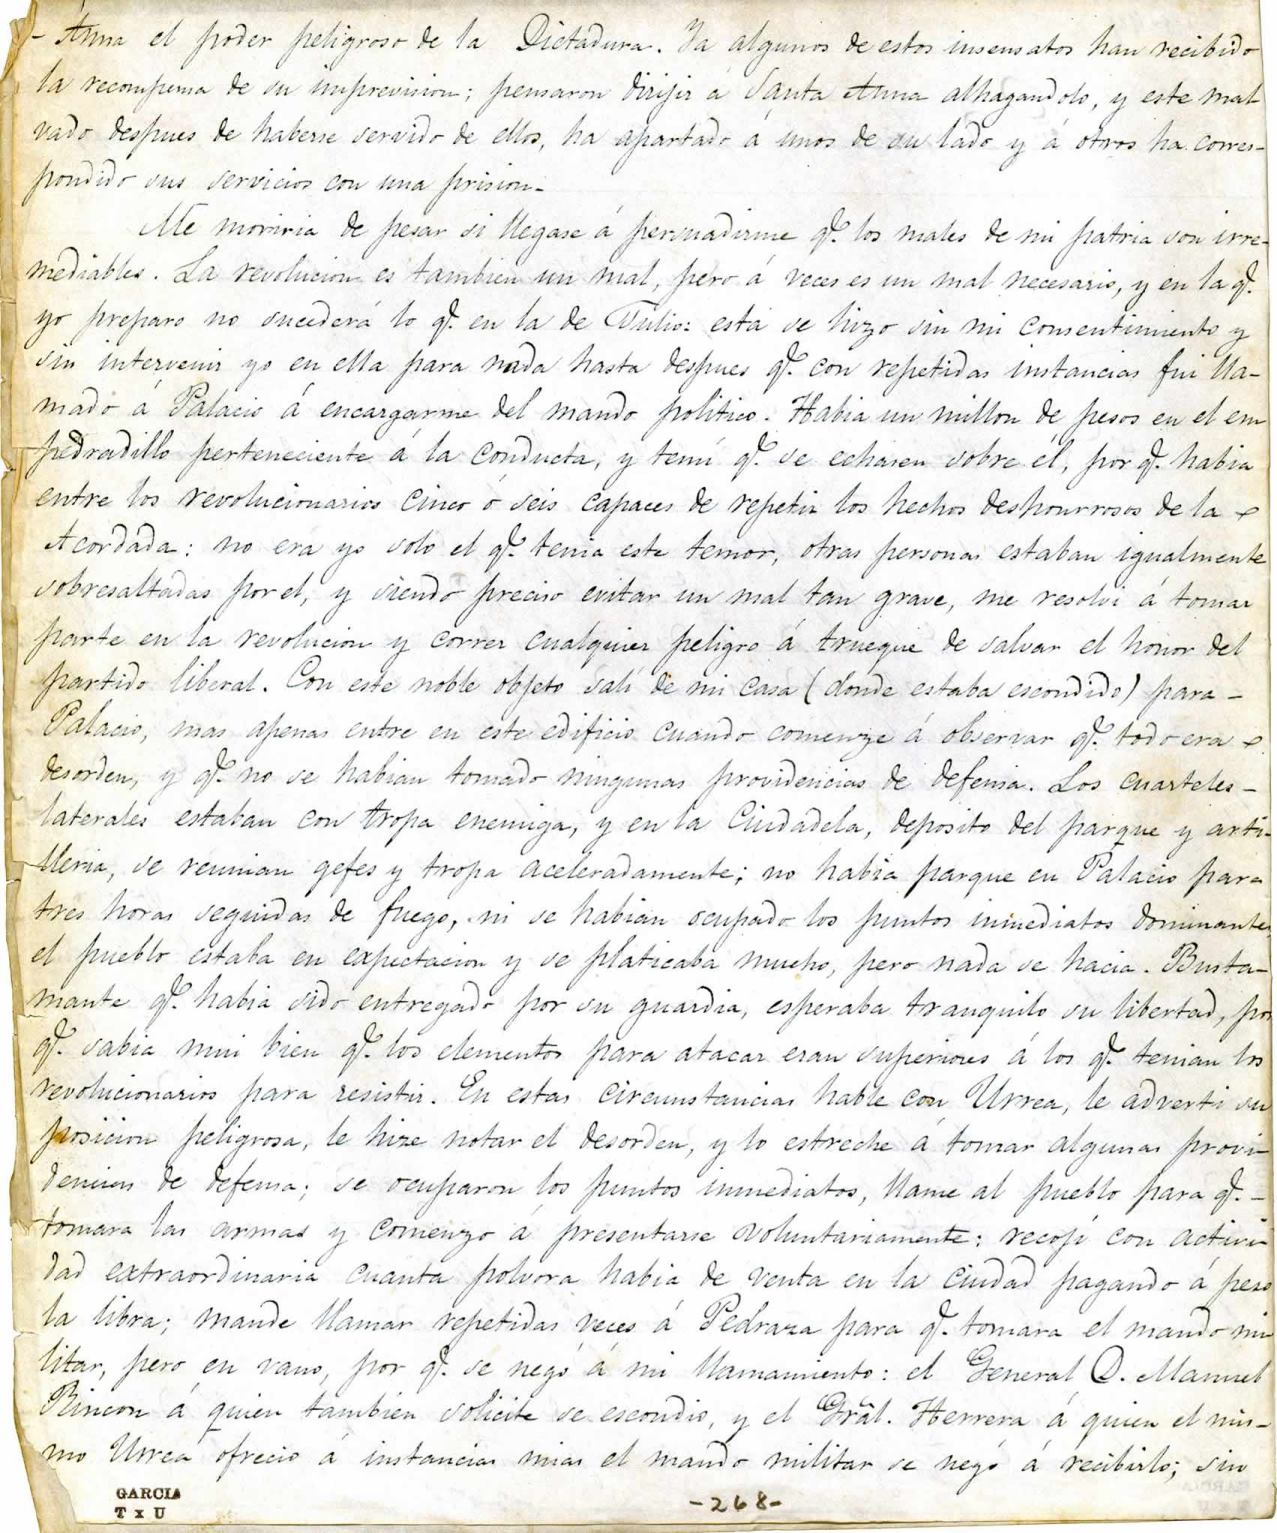 - Anna el poder peligroso de la Dictadura. Ya algunos de estos insensatos han recibido
la recompensa de su imprevision; pensaron dirijir á Santa Anna alhagandolo, y este mal
vado despues de haberse servido de ellos, ha apartado á unos de su lado y á otros ha corres-
pondido sus servicios con una prision.-
Me moriria de pesar si llegase á persuadirme qe. los males de mi patria son irre-
mediables. La revolucion es tambien un mal, pero á veces es un mal necesario, y en la qe.
yo preparo no sucederá lo qe. en la de Julio: esta se hizo sin mi consentimiento y
sin intervenir yo en ella para nada hasta despues qe. con repetidas instancias fui lla-
mado á Palacio á encargarme del mando politico. Habia un millon de pesos en el em
pedradillo perteneciente á la Conducta, y temí qe. se echasen sobre él, por qe. habia
entre los revolucionarios cinco ó seis capaces de repetir los hechos deshonrrosos de la
Acordada: no era yo solo el qe. tenia este temor, otras personas estaban igualmente
sobresaltadas por el, y siendo preciso evitar un mal tan grave, me resolví á tomar
parte en la revolucion y correr cualquier peligro á trueque de salvar el honor del
partido liberal. Con este noble objeto salí de mi casa (donde estaba escondido) para -
Palacio, mas apenas entre en este edificio cuando comenze á observar qe. todo era
desorden, y qe. no se habian tomado ningunas providencias de defensa. Los cuarteles -
laterales estaban con tropa enemiga, y en la Ciudadela, deposito del parque y arti-
lleria, se reunian gefes y tropa aceleradamente; no habia parque en Palacio para
tres horas seguidas de fuego, ni se habian ocupado los puntos inmediatos dominantes,
el pueblo estaba en expectacion y se platicaba mucho, pero nada se hacia. Busta-
mante qe. habia sido entregado por su guardia, esperaba tranquilo su libertad, por
qe. sabia mui bien qe. los elementos para atacar eran superiores á los qe. tenian los
revolucionarios para resistir. En estas circunstancias hable con Urrea, le adverti su
posicion peligrosa, le hize notar el desorden, y lo estreche á tomar algunas provi-
dencias de defensa; se ocuparon los puntos inmediatos, llame al pueblo para qe. -
tomara las armas y comenzo á presentarse voluntariamente: recojí con activi-
dad extraordinaria cuanta polvora habia de venta en la ciudad pagando á peso
la libra; mande llamar repetidas veces á Pedraza para qe. tomara el mando mi
litar, pero en vano, por qe. se negó á mi llamamiento: el General D. Manuel
Rincon á quien tambien solicite se escondio, y el Grâl. Herrera á quien el mis-
mo Urrea ofrecio á instancias mias el mando militar se negó á recibirlo; sin
GARCIA
T x U
-268-